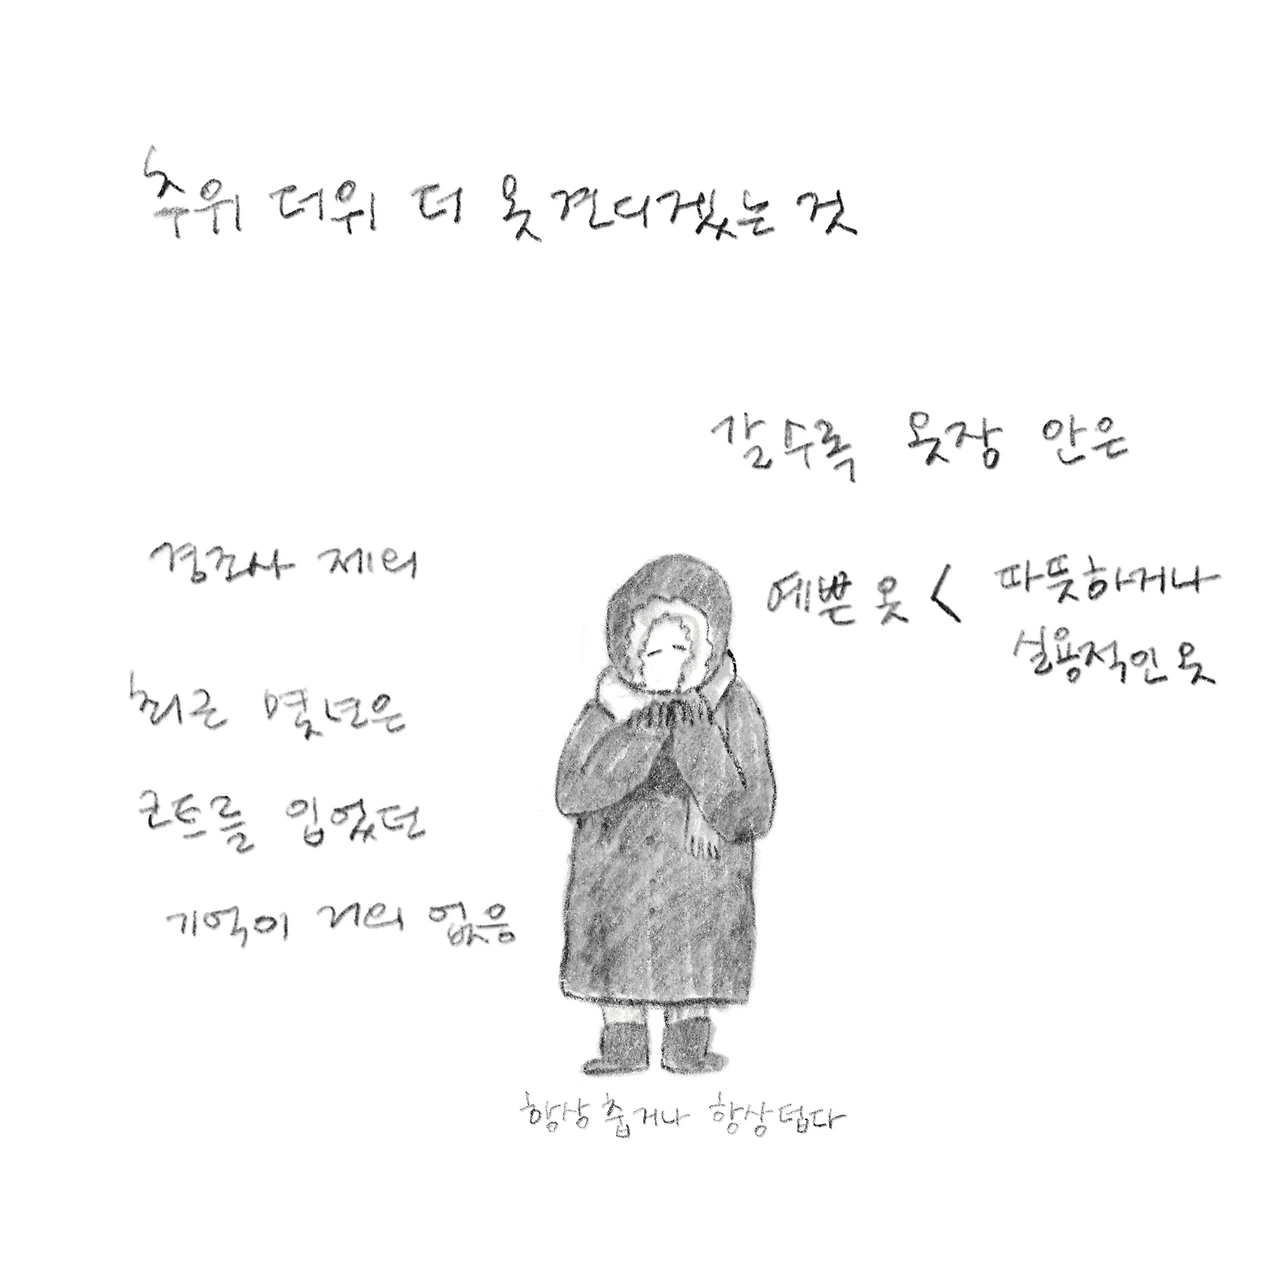 추위 더위 더 못 견디겠는 것
갈수록 옷장 안은
예쁜 옷 < 따뜻하거나
실용적인 옷
경조사 제외
최근 몇년은
코트를 입었던
기억이 거의 없음
항상 춥거나 항상 덥다